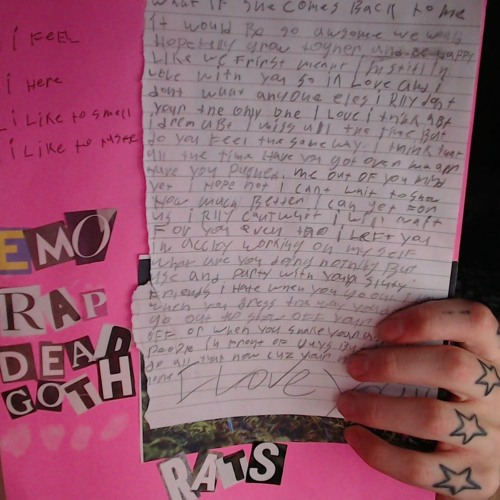 i FEEL
i HERE
i LiKE to smell
i LiKE to taste
EMO
RAP
DEAD
GOTH
What if she comes Back to me
it would Be so awsome we would
Hopefully grow togher and be happy
Like we frirst meant I Justill In
Love with you so in Love and I
dont want anyone eles I Rlly dont
your the only one I Love I think abt
I drem abt I miss all the time But
do you Feel the same way. I think that
all the time Have you got over me
Have you Pushed me out of you mind
yet I Hope not I cant wait to show
How much Better I can get For
us I Rlly cant wait I will wait
For you even tho I Left you
in working on my self
what are you doing nothing But
and party with your
Friends I Hate when you go out
when you dress the way you
go out to show off your
off or when you shake your
People in Front of Guys But
do all that now cuz your
I Love
RATS